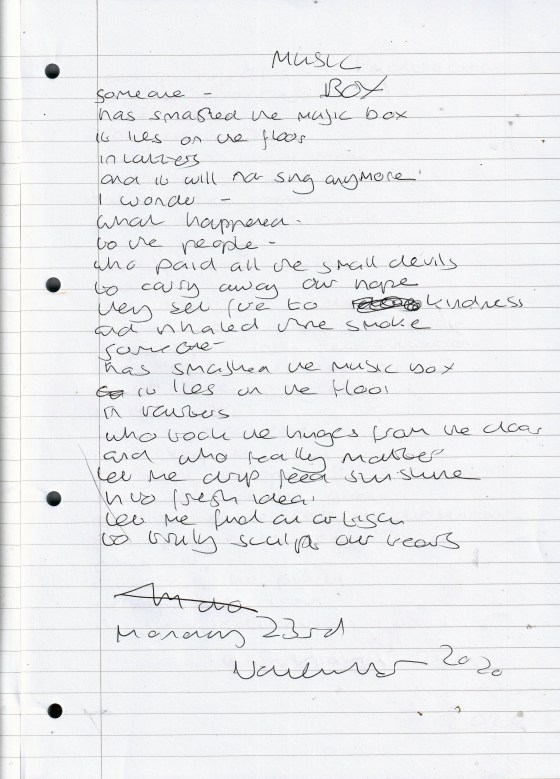 MUSIC
BOX
someone -
has smashed the music box
it lies on the floor
in tatters
and it will not sing anymore
I wonder -
what happened -
to the people -
who paid all the small devils
to carry away our hope
they set fire to kindness
and inhaled the smoke
someone -
has smashed the music box
it lies on the floor
in tatters
who took the hinges from the door
and who really matters
let me drip feed sunshine
into fresh ideas
let me find an artisan
to truly sculpt our tears
Monday 23rd
November 2020